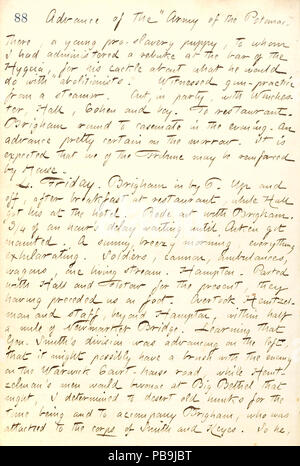 88 Advance of the "Army of the Potomac."
there, a young pro-slavery puppy, to whom
I had administered a rebuke at the bar of the
Hygeia, for his cackle about what he would
do with "abolitionists". Witnessed gun-practice
from a steamer. Out, in party, with Winches-
ter Hall, Cohen and boy. To restaurant.
Brigham round to casemate in the evening. An
advance pretty certain on the morrow. It is
expected that we of the Tribune may be reinforced
by House.
4. Friday. Brigham in by 6. Up and
off, after breakfast at restaurant, while Hall
got his at the hotel. Rode out with Brigham.
3/4 of an hour's delay waiting until Aiken got
mounted. A sunny, breezy morning, everything
exhilarating. Soldiers, cannon, ambulances,
wagons, one living stream. Hampton. Parted
with Hall and for the present, they
having preceded us on foot. Overtook Heintzel-
man and staff, beyond Hampton, within half
a mile of Newmarket Bridge. Learning that
Gen. Smith's division was advancing on the left,
that it might possibly have a brush with the enemy
on the Warwick Court-house road, while Heint-
zelman's men would bivouac at Big Bethel that
night, I determined to desert old hunks for the
time being and to accompany Brigham, who was
attached to the corps of Smith and Keyes. So he,
alamy
PB9JBT